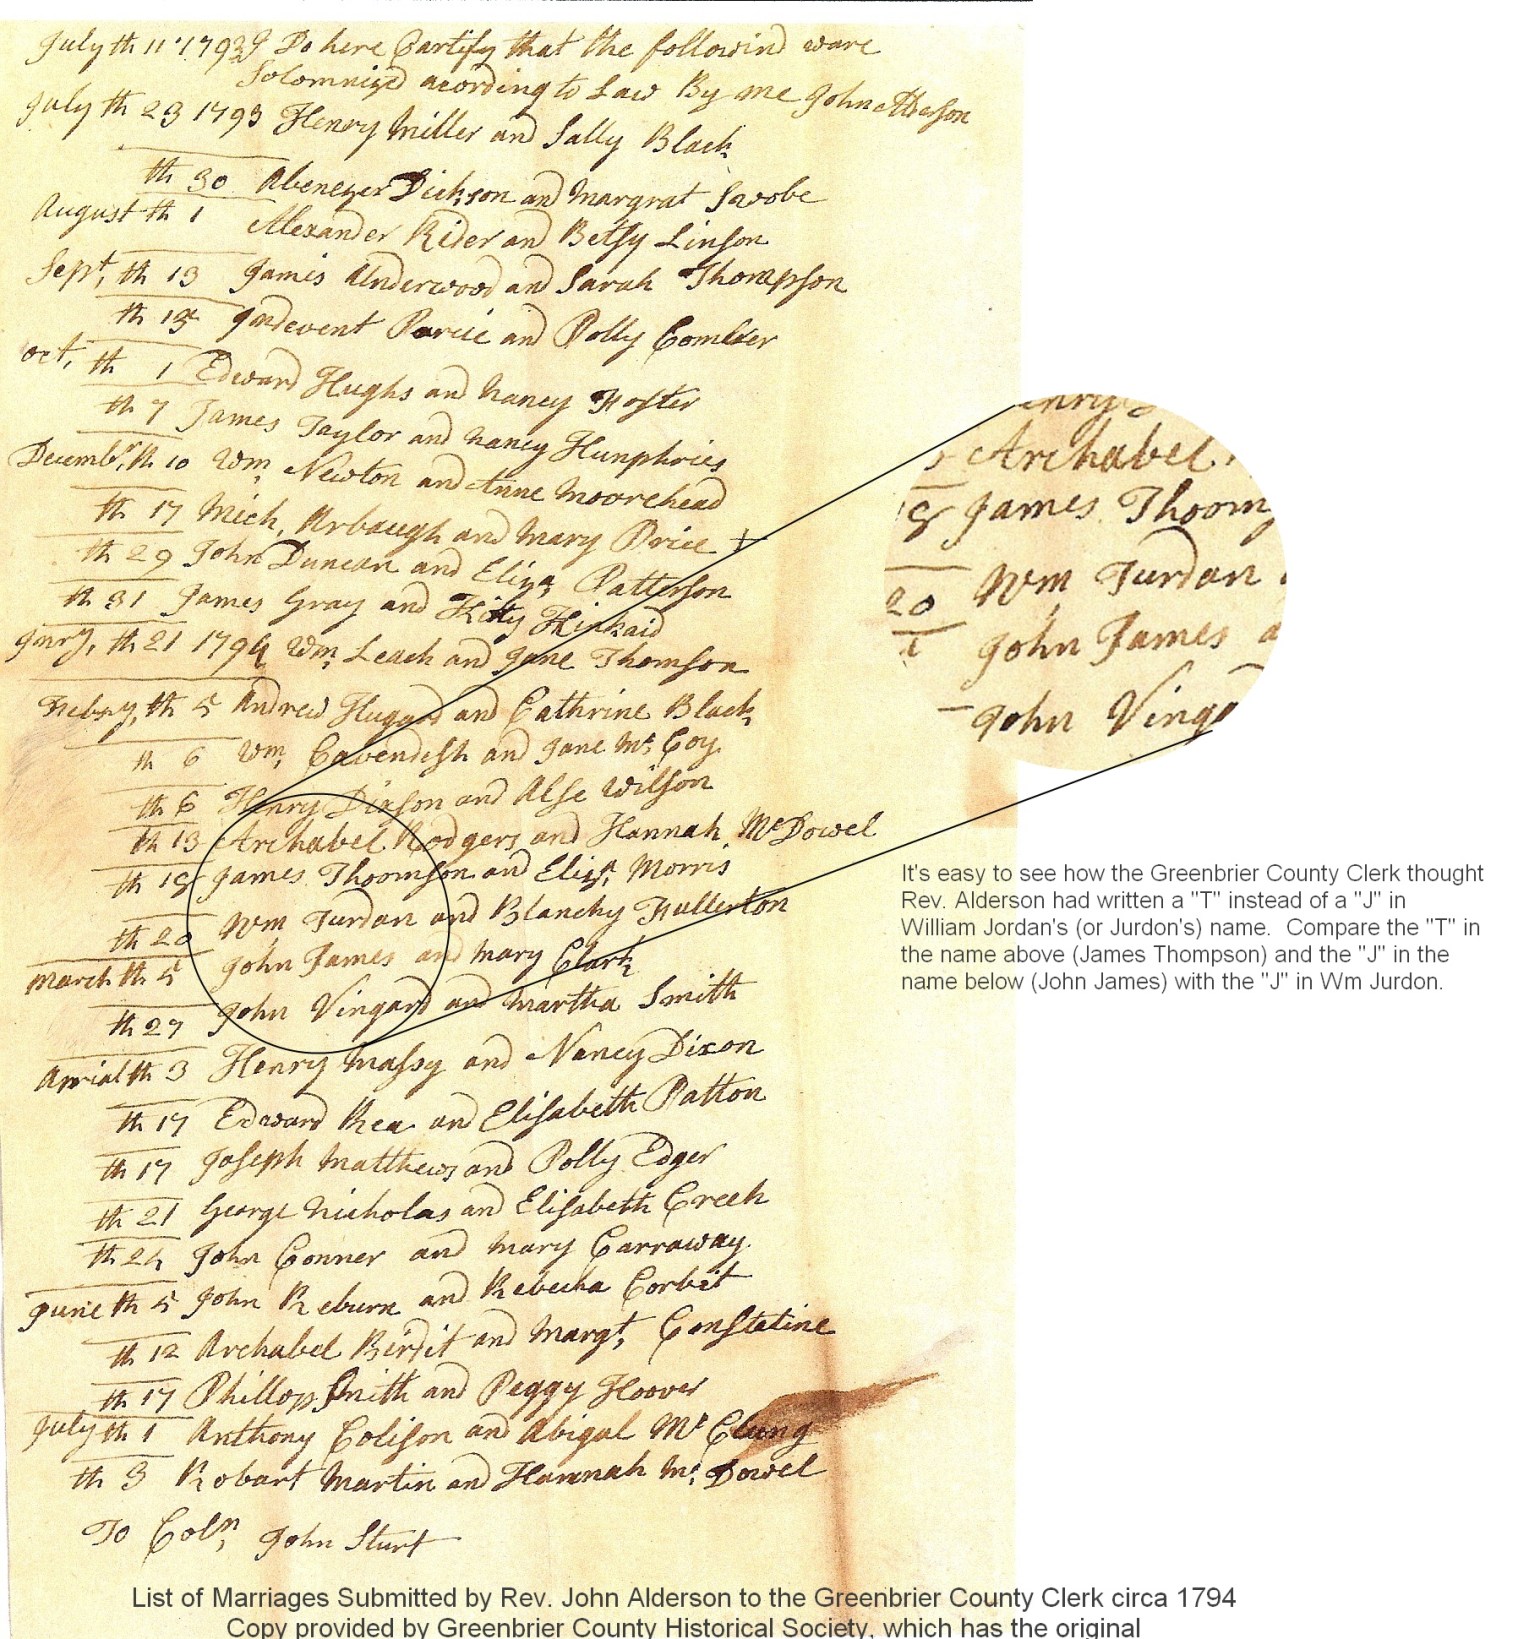 July th 11 1793 I Do here Cartify that the followind ware
Solomnized acording to Law By me John Alderson
July th 23 1793 Henry Miller and Sally Black
th 30 Abenezer Dickson and Margrat
August th 1 Alexander Rider and Betsy Linson
Sept, th 13 James Underwood and Sarah Thompson
th 15 and Polly
Oct, th 1 Edward Hughs and Nancy Hoster
th 7 James Taylor and Nancy Humphries
Decembr, th 10 Wm, Newton and Anne Moorehead
th 17 Mich, Arbaugh and Mary Price +
th 29 John Duncan and Eliza Patterson
th 31 James Gray and Kitty Kinkaid
Janry, th 21 1794 Wm, Leach and Jane Thomson
Febry, th 5 Andrew Huggard and Cathrine Black
th 6 Wm, Cavendish and Jane Mc Coy
th 6 Henry Dixson and Alse Wilson
th 13 Archabel Rodgers and Hannah McDowel
th 18 James Thoomson and Eliza Morris
th 20 Wm Jurdan and Blanchy Fullerton
March th 5 John James and Mary Clark
th 27 John Vingard and Martha Smith
Aprial th 3 Henry Massy and Nancy Dixon
th 17 Edward Rea and Elisabeth Patton
th 17 Joseph Matthews and Polly Edger
th 21 George Nicholas and Elisabeth Creek
th 24 John Conner and Mary Carraway
June th 5 John Reburn and Rebecka Corbet
th 12 Archabel Birdit and Margt, Constatine
th 17 Phillop Smith and Peggy Hoover
July th 1 Anthony Colison and Abigal Mc Clung
th 3 Robart Martin and Hannah Mc, Dowel
To Coln, John Sturt
enry
Archabel.
18 James Thoom
20 Wm Jurdan
John James a
John Vinga
It's easy to see how the Greenbrier County Clerk thought
Rev. Alderson had written a "T" instead of a "J" in
William Jordan's (or Jurdon's) name. Compare the "T" in
the name above (James Thompson) and the "J" in the
name below (John James) with the "J" in Wm Jurdon.
List of Marriages Submitted by Rev. John Alderson to the Greenbrier County Clerk circa 1794
Copy provided by Greenbrier County Historical Society, which has the original